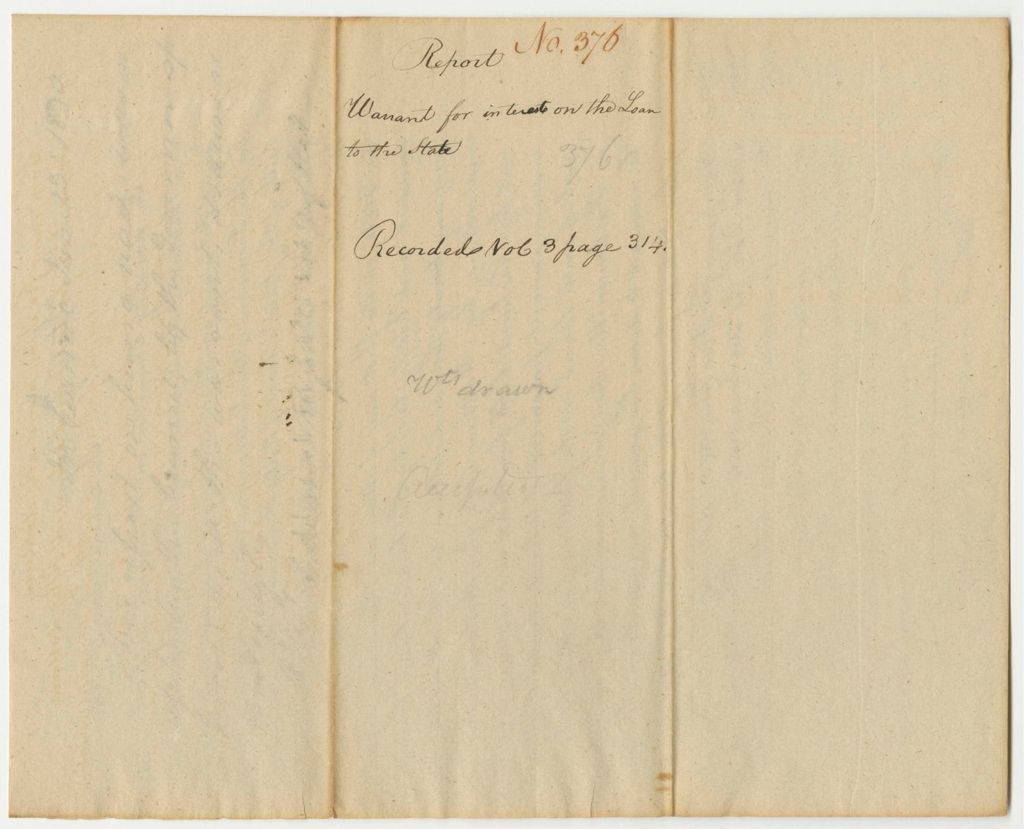 Report No. 376
Warrant for interest on the Loan
to the State
376
Recorded Vol 3 page 314.
Wts drawn